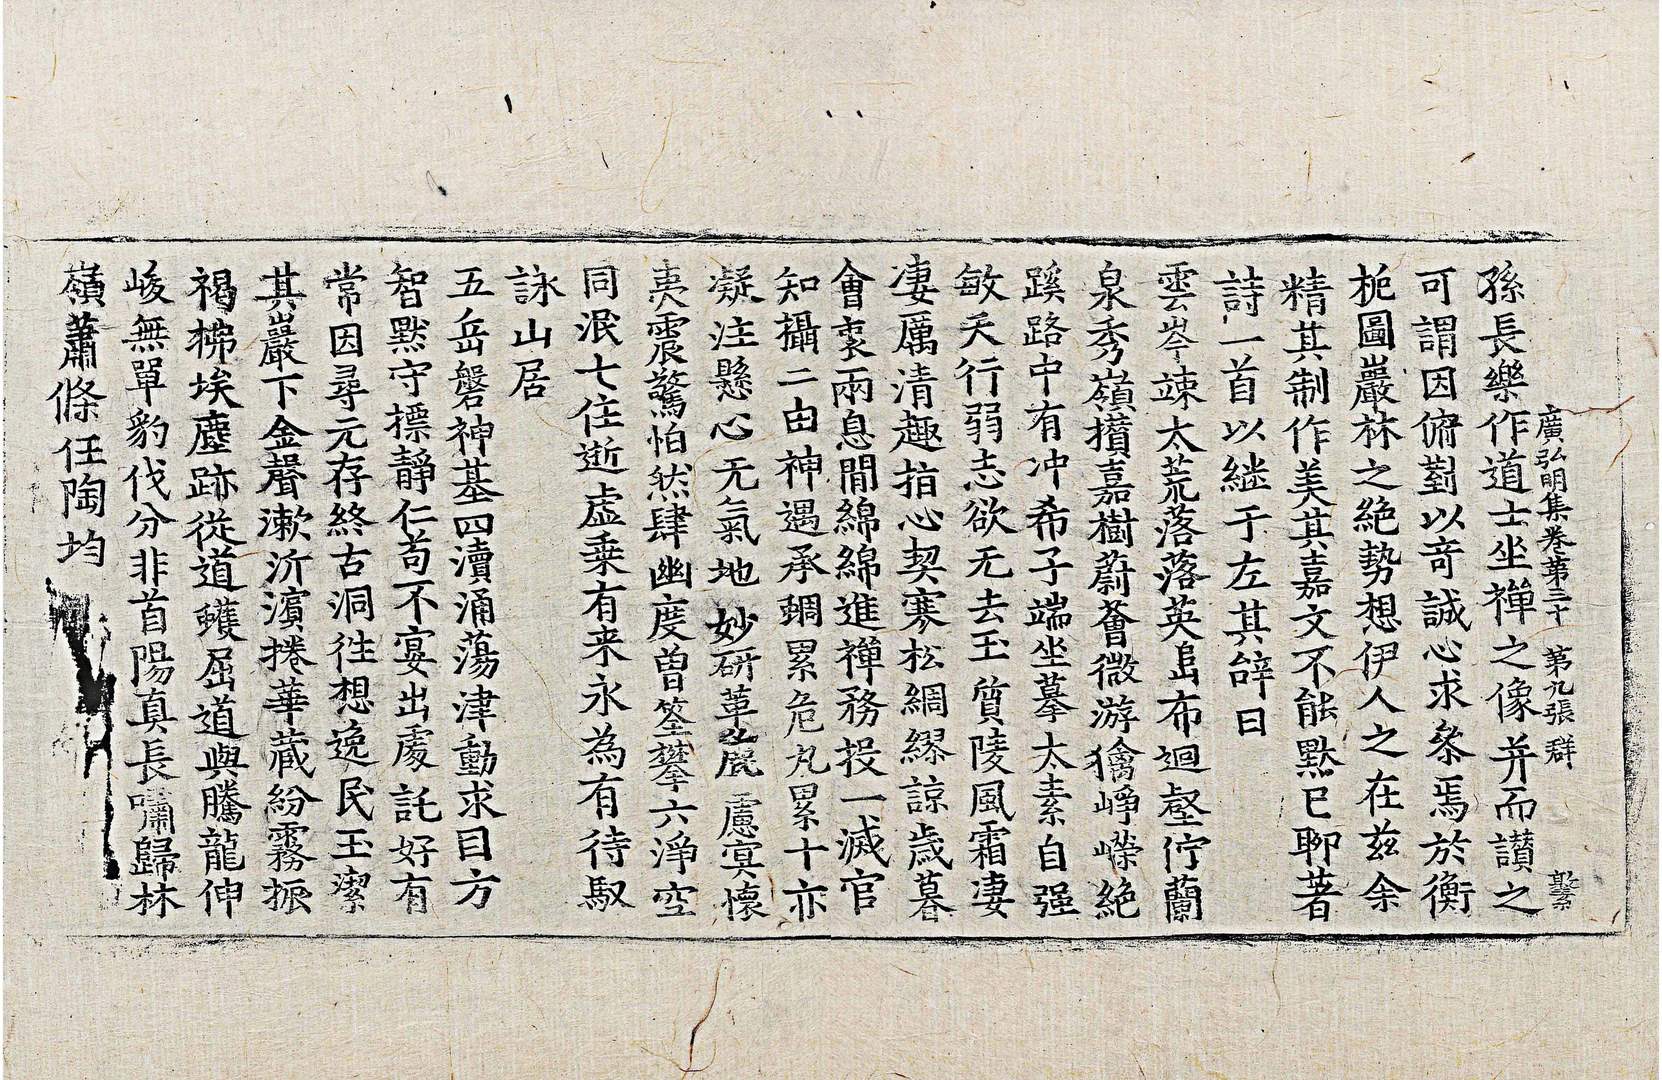 廣弘明集卷第三十 第九張 群
孫長樂作道士坐禪之像并而讃之
可謂因俯對以竒誠心求叅焉於衡
枙圖巖林之絶勢想伊人之在兹余
精其制作美其嘉文不能默已聊著
詩一首以继于左其辤曰
雲岑竦太荒落落英㠀布迴壑佇蘭
泉秀嶺攢嘉樹蔚薈微游禽峥嶸絶
蹊路中有冲希子端坐摹太素自强
敏天行弱志欲无去玉質陵風霜凄
凄厲清趣指心契寒松綢繆諒歳暮
會衷兩息間綿綿進禪務投一滅官
知攝二由神遇承蜩累危九累十亦
凝注懸心无氣地妙研革麁慮㝠懷
夷震驚怕然肆幽度曽筌攀六淨空
同泯七住逝虚乗有来永為有待馭
詠山居
五岳磐神基四瀆涌蕩津動求目方
智默守摽靜仁苟不宴出處託好有
常因尋元存終古洞徃想逸民玉潔
其巖下金聲漱沂濱捲華藏紛霧振
褐拂埃塵跡從道蠖屈道與騰龍伸
峻無單豹伐分非首陽真長嘯歸林
嶺蕭條任陶均